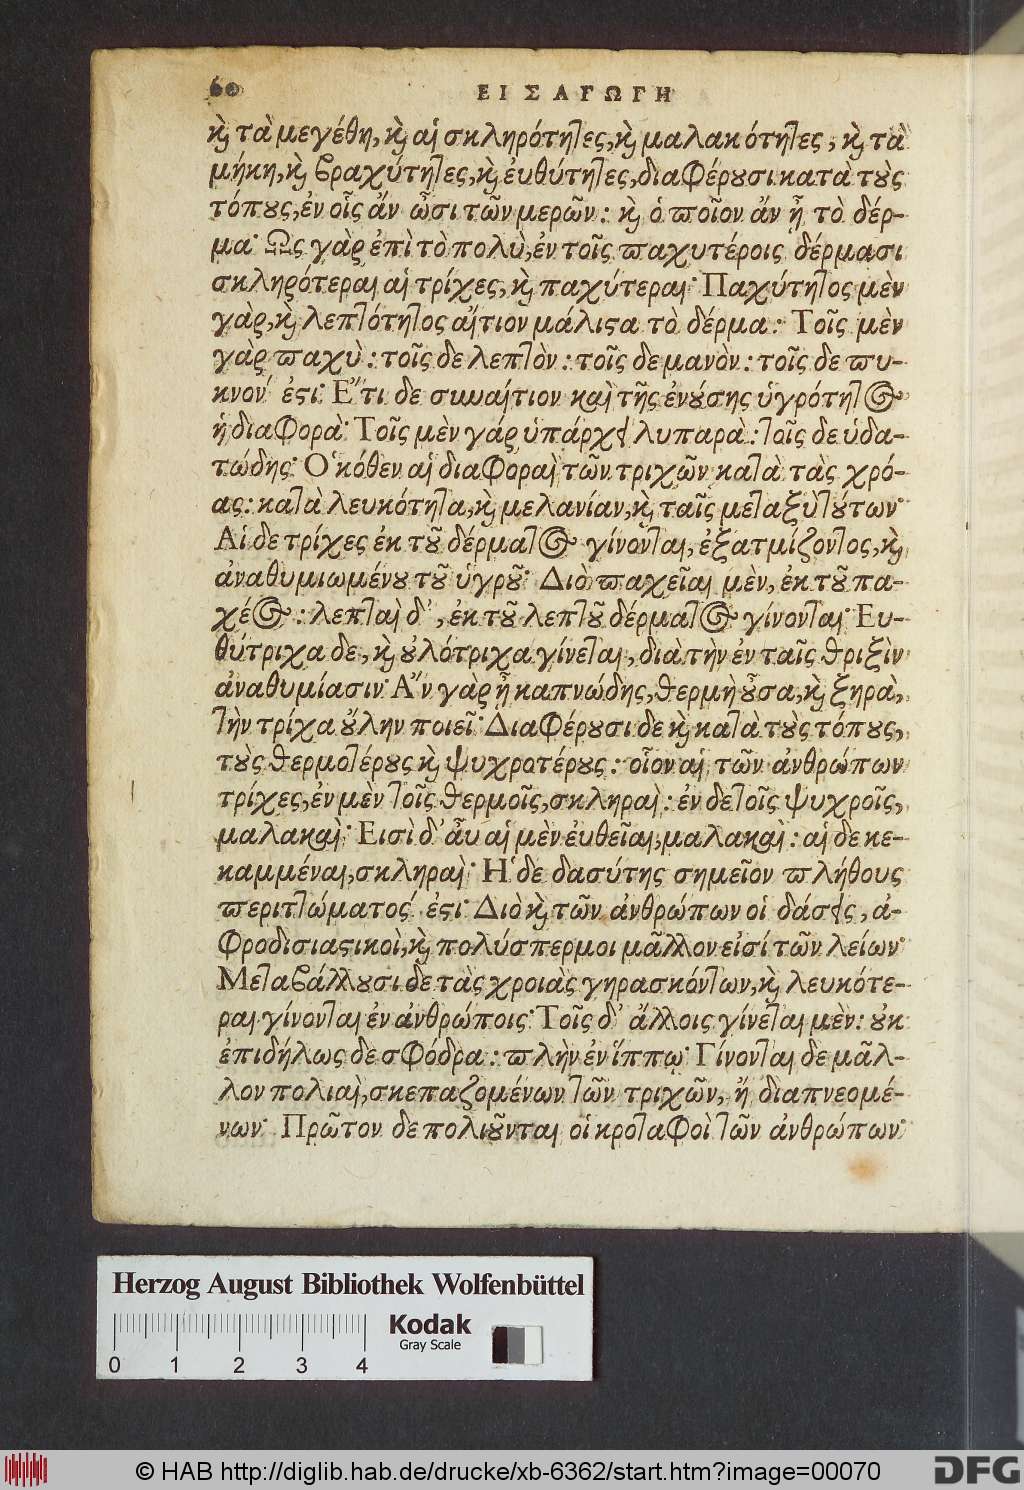 60
ΕΙΣΑΓΩΓΗ
καὶ τὰ μεγέθη, καὶ αἱ σκληρότητες, καὶ μαλακότητες, καὶ τὰ
μήκη, καὶ βραχύτητες, καὶ ἐυθύτητες, διαφέρουσι κατὰ τοὺς
τόπους, ἐν οἷς ἄν ὦσι τῶν μερῶν: καὶ ὁποῖον ἄν ᾖ τὸ δέρ-
μα· Ως γὰρ ἐπὶ τὸ πολὺ, ἐν τοῖς παχυτέροις δέρμασι
σκληρότεραι αἱ τρίχες, καὶ παχύτεραι· Παχύτητος μὲν
γὰρ, καὶ λεπτότητος αἴτιον μάλιστα τὸ δέρμα: Τοῖς μὲν
γὰρ παχὺ: τοῖς δε λεπτὸν: τοῖς δε μανὸν: τοῖς δε πυ-
κνον ἐστι· Ἔτι δε συναίτιον καὶ τῆς ἐνούσης ὑγρότητος
ἡ διαφορὰ· Τοῖς μὲν γάρ ὑπάρχει λυπαρὰ: τοῖς δε ὑδα-
τώδης· Ὁκόθεν αἱ διαφοραὶ τῶν τριχῶν κατὰ τὰς χρό-
ας: κατὰ λευκότητα, καὶ μελανίαν, καὶ ταῖς μεταξὺ τούτων·
Αἱ δε τρίχες ἐκ τοῦ δέρματος γίνονται, ἐξατμίζοντος, καὶ
ἀναθυμιωμένου τοῦ ὑγροῦ· Διὸ παχεῖαι μὲν, ἐκ τοῦ πα-
χέος: λεπταὶ δ', ἐκ τοῦ λεπτοῦ δέρματος γίνονται· Ευ-
θύτριχα δε, καὶ οὐλότριχα γίνεται, διὰ τὴν ἐν ταῖς θριξὶν
ἀναθυμίασιν· Ἄν γὰρ ᾖ καπνώδης, θερμὴ οὖσα, καὶ ξηρὰ,
τὴν τρίχα οὔλην ποιεῖ· Διαφέρουσι δε καὶ κατὰ τοὺς τόπους,
τοὺς θερμοτέρους καὶ ψυχροτέρους: οἷον αἱ τῶν ἀνθρώπων
τρίχες, ἐν μὲν τοῖς θερμοῖς, σκληραὶ: ἐν δε τοῖς ψυχροῖς,
μαλακαὶ· Εισὶ δ' ἆυ αἱ μὲν ἐυθεῖαι, μαλακαὶ: αἱ δε κε-
καμμέναι, σκληραὶ· Ἡ δε δασύτης σημεῖον πλήθους
περιττώματος ἐστι· Διὸ καὶ τῶν ἀνθρώπων οἱ δάσεις, ἀ-
φροδισιαστικοὶ, καὶ πολύσπερμοι μᾶλλον εἰσί τῶν λείων·
Μεταβάλλουσι δε τὰς χροιὰς γηρασκόντων, καὶ λευκότε-
ραι γίνονται ἐν ἀνθρώποις· Τοῖς δ' ἄλλοις γίνεται μὲν: οὐκ
ἐπιδήλως δε σφόδρα: πλὴν ἐν ἵππῳ· Γίνονται δε μᾶλ-
λον πολιαὶ, σκεπαζομένων τῶν τριχῶν, ἤ διαπνεομέ-
νων· Πρῶτον δε πολιοῦνται οἱ κροταφοὶ τῶν ἀνθρώπων·
Herzog August Bibliothek Wolfenbüttel
Kodak
Gray Scale
0 1 2 3 4
© HAB http://diglib.hab.de/drucke/xb-6362/start.htm?image=00070
DFG